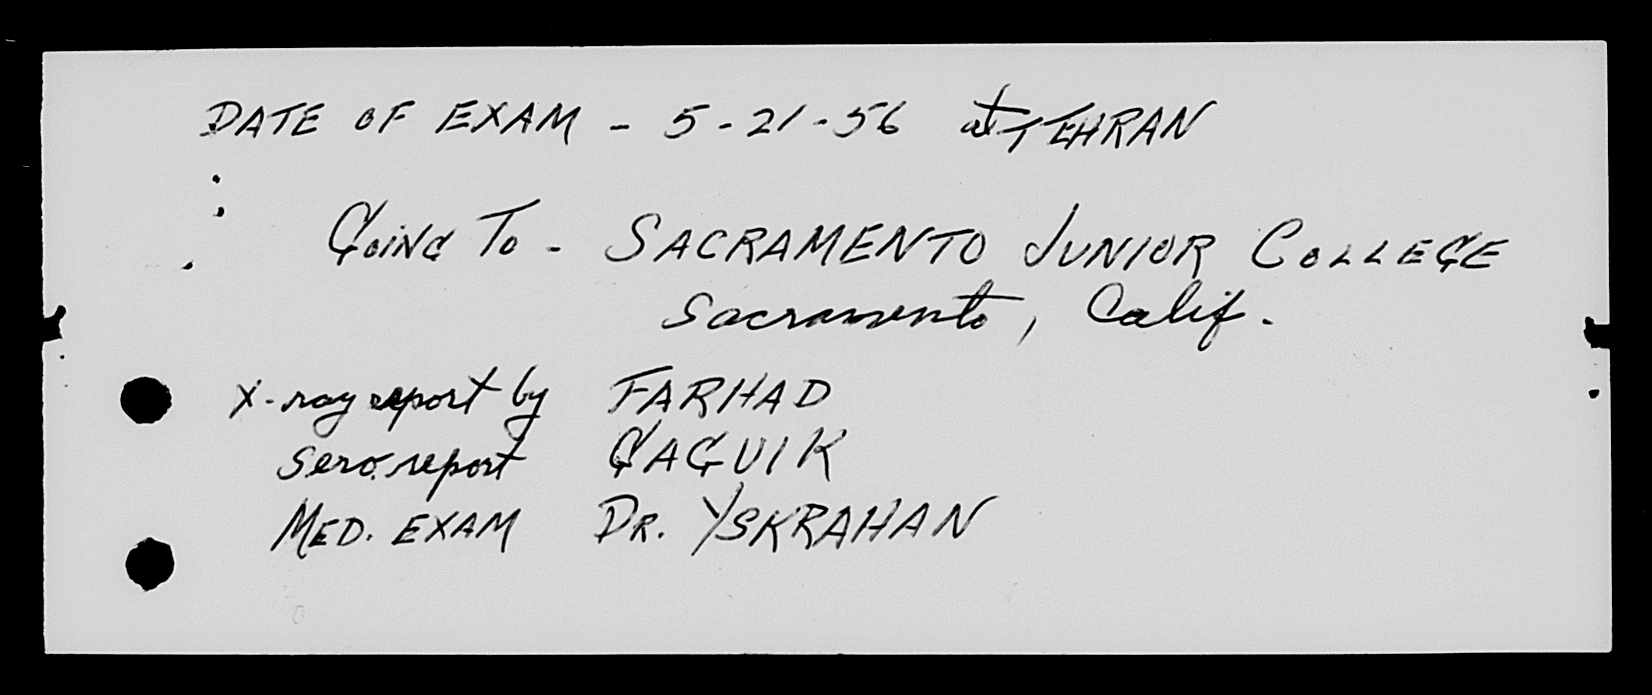 DATE OF EXAM - 5-21-56 at TEHRAN
GOING TO - SACRAMENTO JUNIOR COLLEGE
Sacramento, Calif.
X-ray report by FARHAD
Sero. report GAGUIK
MED. EXAM DR. YSKRAHAN